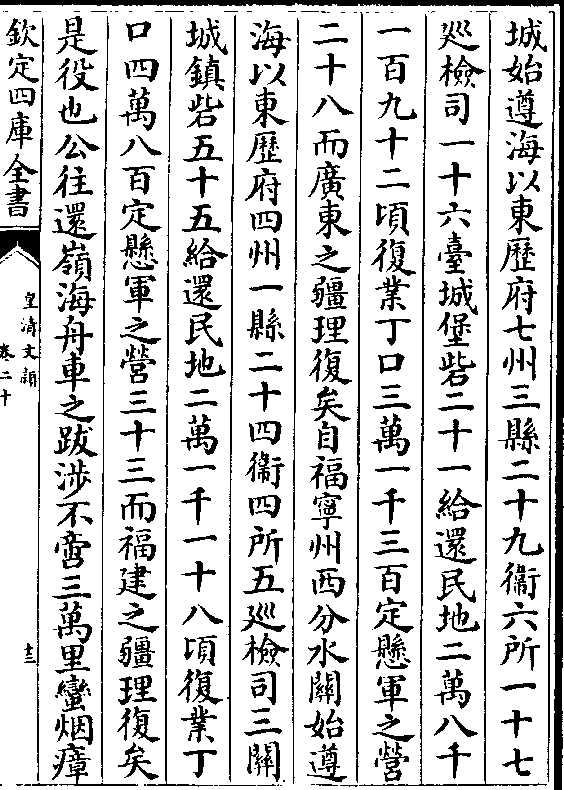 城始遵海以東歷府七州三縣二十九衞六所一十七
廵檢司一十六臺城堡砦二十一給還民地二萬八千
一百九十二頃復業丁口三萬一千三百定懸軍之營
二十八而廣東之疆理復矣自福寧州西分水關始遵
海以東歷府四州一縣二十四衞四所五廵檢司三關
城鎮砦五十五給還民地二萬一千一十八頃復業丁
口四萬八百定懸軍之營三十三而福建之疆理復矣
是役也公往還嶺海舟車之跋涉不啻三萬里蠻烟瘴
欽定四庫全書
皇清文頴
卷二十
十三